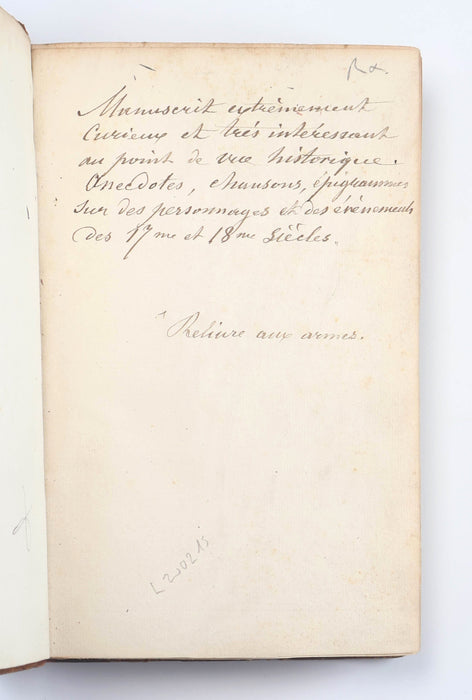 Manuscrit extrêmement
Curieux et très intéressant
au point de vue historique.
Anecdotes, chansons, épigrammes
sur des personnages et des événements
des 17me et 18me Siècles.
Reliure aux armes.
L 200215